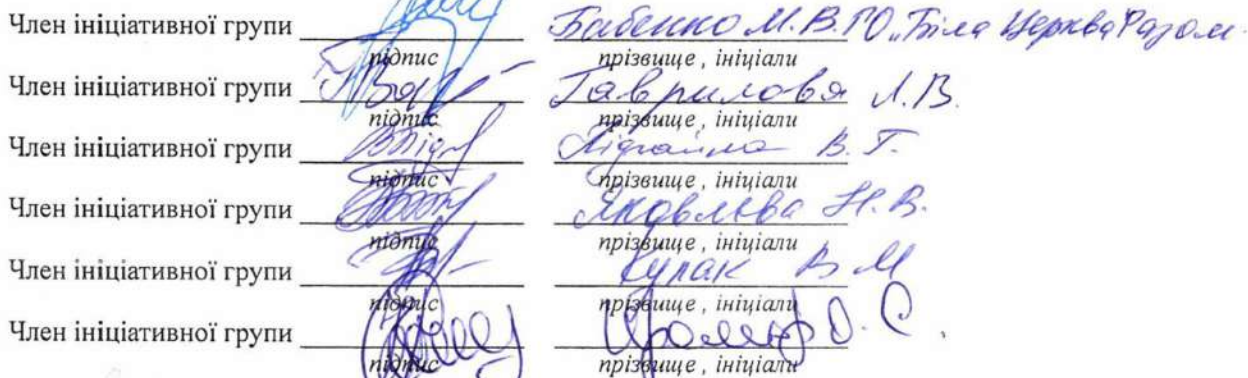 Член ініціативної групи Бабенко М.В. ГО „Біла Церква Разом
підпис прізвище , ініціали
Член ініціативної групи Гаврилова Л.В.
підпис прізвище , ініціали
Член ініціативної групи В. Г.
підпис прізвище , ініціали
Член ініціативної групи Яковлєва Н.В.
підпис прізвище , ініціали
Член ініціативної групи Кулак В М
підпис прізвище , ініціали
Член ініціативної групи О. С.
підпис прізвище , ініціали